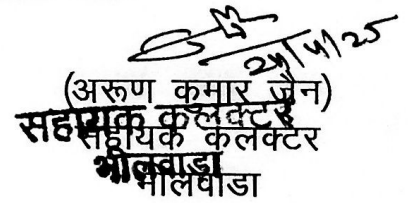 24/4/25
(अरूण कुमार जैन)
सहायक कलक्टर
सहायक कलक्टर
भीलवाडा
भीलवाडा